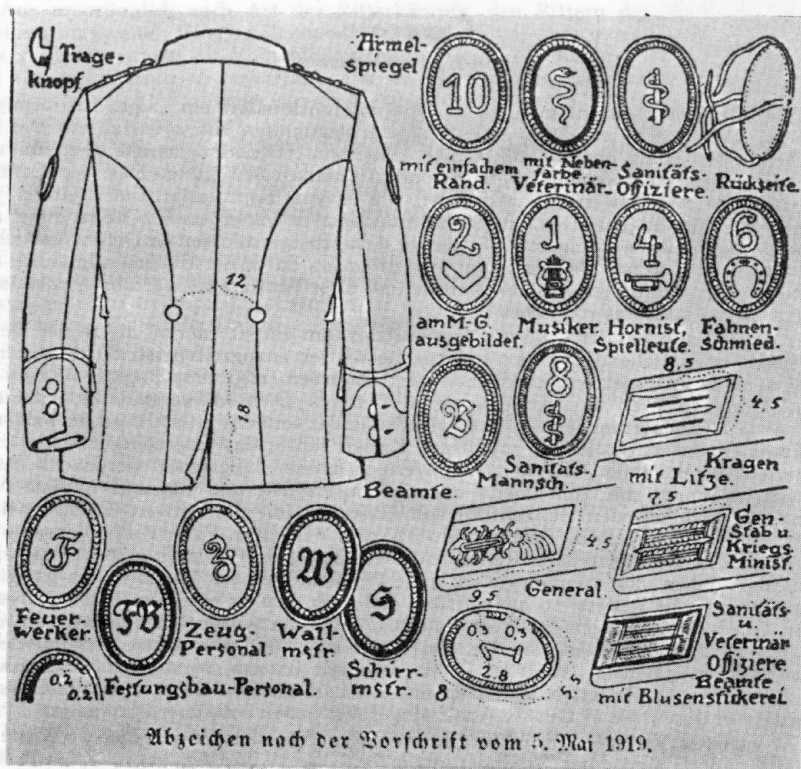 Trage-
knopf
Ärmel-
spiegel
10
mit einfachem
Rand.
mit Neben-
farbe
Veterinär-
Sanitäts-
Offiziere.
Rückseite.
2
am M-G.
ausgebildet.
1
Musiker.
4
Hornist,
Spielleute.
6
Fahnen-
schmied.
12
18
B
Beamte.
8
Sanitäts-
Mannsch.
8,5
4,5
Kragen
mit Litze.
4,5
9,5
General.
7,5
Gen-
Stab u.
Kriegs
Minist.
F
Feuer-
werker
FB
Festungsbau-Personal.
0,2
0,2
Z
Zeug-
Personal
W
Wall-
mstr
S
Schirr-
mstr.
0,3
0,3
1
2,8
8
5,5
Sanitäts-
u.
Veterinär
Offiziere
Beamte
mit Blusenstickerei.
Abzeichen nach der Vorschrift vom 5. Mai 1919.